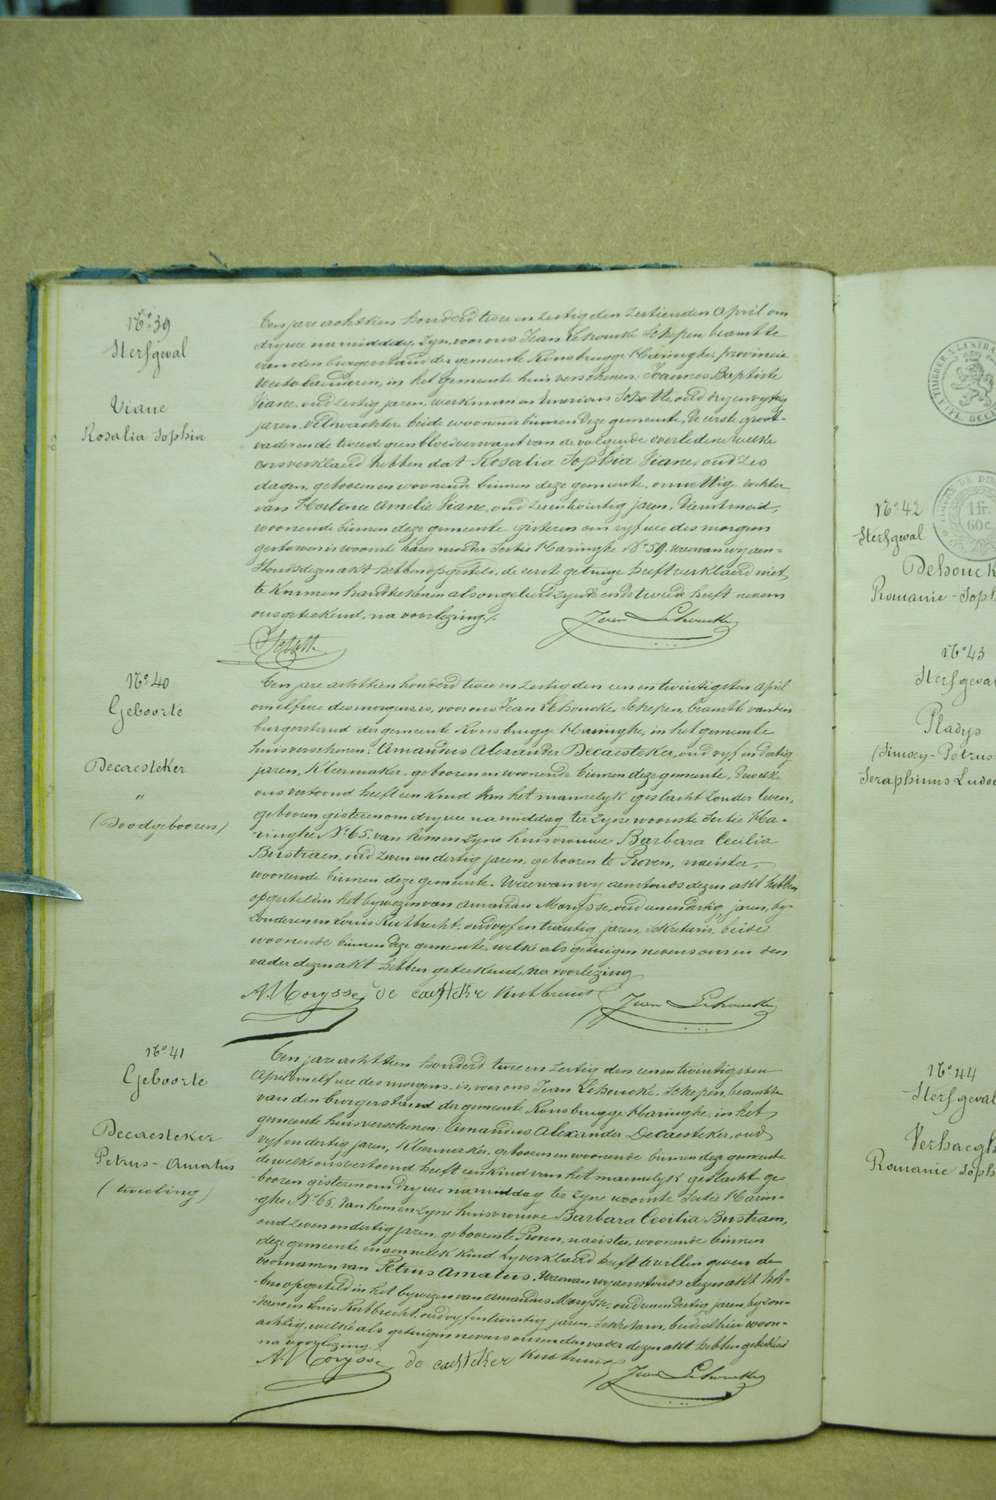 No 39
Sterfgeval
Viane
Rosalia Sophia
Een jare achttien honderd twee en zestig den zestienden April om
dry ure na middag, zyn, voor ons Jean Lehoucke Schepen beambte
van den burgerstand der gemeente Rousbrugge Haringhe provincie
West vlaenderen, in het gemeente huis verschenen; Joannes Baptiste
Viane, oud zestig jaren, werkman en
jaren, veldwachter beide woonende binnen deze gemeente, de eerste groot-
vader en de tweede geen bloedverwant van de volgende overledene welke
ons verklaerd hebben dat Rosalia Sophia Viane, oud zes
dagen, geboren en woonende binnen deze gemeente, onwettige dochter
van Hortence Amelie Viane, oud jaren, Dienstmeid,
woonende binnen deze gemeente gisteren om vyf ure des morgens
gestorven is woonste harer moeder Sectie Haringhe No 59. waervan wy aen-
stonds dezen akt hebben opgesteld, de eerste getuige heeft verklaerd niet
te kunnen handtekenen als ongeleerd zynde en de tweede heeft nevens
ons geteekend, na voorlezing.
Jean Lehoucke
No 40
Geboorte
Decaesteker
"
(Doodgebooren)
Een jare achttien honderd twee en zestig den een en twintigsten April
om elf ure des morgens is, voor ons Jean Lehoucke, Schepen, beambte van den
burgerstand der gemeente Rousbrugge Haringhe, in het gemeente
huis verschenen: Amandus Alexander Decaesteker, oud vyf en dertig
jaren, Kleermaker, gebooren en woonende binnen deze gemeente, dewelke
ons vertoond heeft een kind van het mannelyk geslacht zonder leven,
gebooren gisteren om dry ure na middag ter zyne woonste Sectie Ha-
ringhe No 65, van hem en zyne huisvrouwe Barbara Cecilia
Berstraen, oud zeven en dertig jaren, gebooren te Proven, naeister,
woonende binnen deze gemeente. Waervan wy aenstonds dezen akt hebben
opgesteld in het bywezen van Amandus Morysse, oud een en dertig jaren, by-
zonderen en Louis Rutbrecht, oud vyf en twintig jaren, sekretaris, beide
woonende binnen deze gemeente, welke als getuigen nevens ons en den
vader dezen akt hebben geteekend, na voorlezing
A. Morysse de caesteker Jean Lehoucke
No 41
Geboorte
Decaesteker
Petrus-Amatus
(tweeling)
Een jare achttien honderd twee en zestig den een en twintigsten
April om elf ure des morgens, is, voor ons Jean Lehoucke, Schepen, beambte
van den burgerstand der gemeente Rousbrugge Haringhe, in het
gemeente huis verschenen: Amandus Alexander Decaesteker, oud
vyf en dertig jaren, Kleermaker, gebooren en woonende binnen deze gemeente
dewelke ons vertoond heeft een kind van het mannelyk geslacht ge-
booren gisteren om dry ure na middag ter zyne woonste Sectie Harin-
ghe No 65, van hem en zyne huisvrouwe Barbara Cecilia Berstraen,
oud zeven en dertig jaren, gebooren te Proven, naeister, woonende binnen
deze gemeente en aen welk kind hy verklaerd heeft te willen geven de
voornamen van Petrus Amatus. Waervan wy aenstonds dezen akt heb-
ben opgesteld in het bywezen van Amandus Morysse, oud een en dertig jaren, byzon-
deren en Louis Rutbrecht, oud vyf en twintig jaren, Sekretaris, beide alhier woon-
achtig, welke als getuigen nevens ons en den vader dezen akt hebben geteekend
na voorlezing.
A. Morysse de caesteker Jean Lehoucke
1 fr.
60 c.
No 42
Sterfgeval
Dehouck
Romanie-Soph
No 43
Sterfgeval
Pladys
Petrus
Seraphinus Ludov
No 44
Sterfgeval
Verhaegh
Romanie Soph